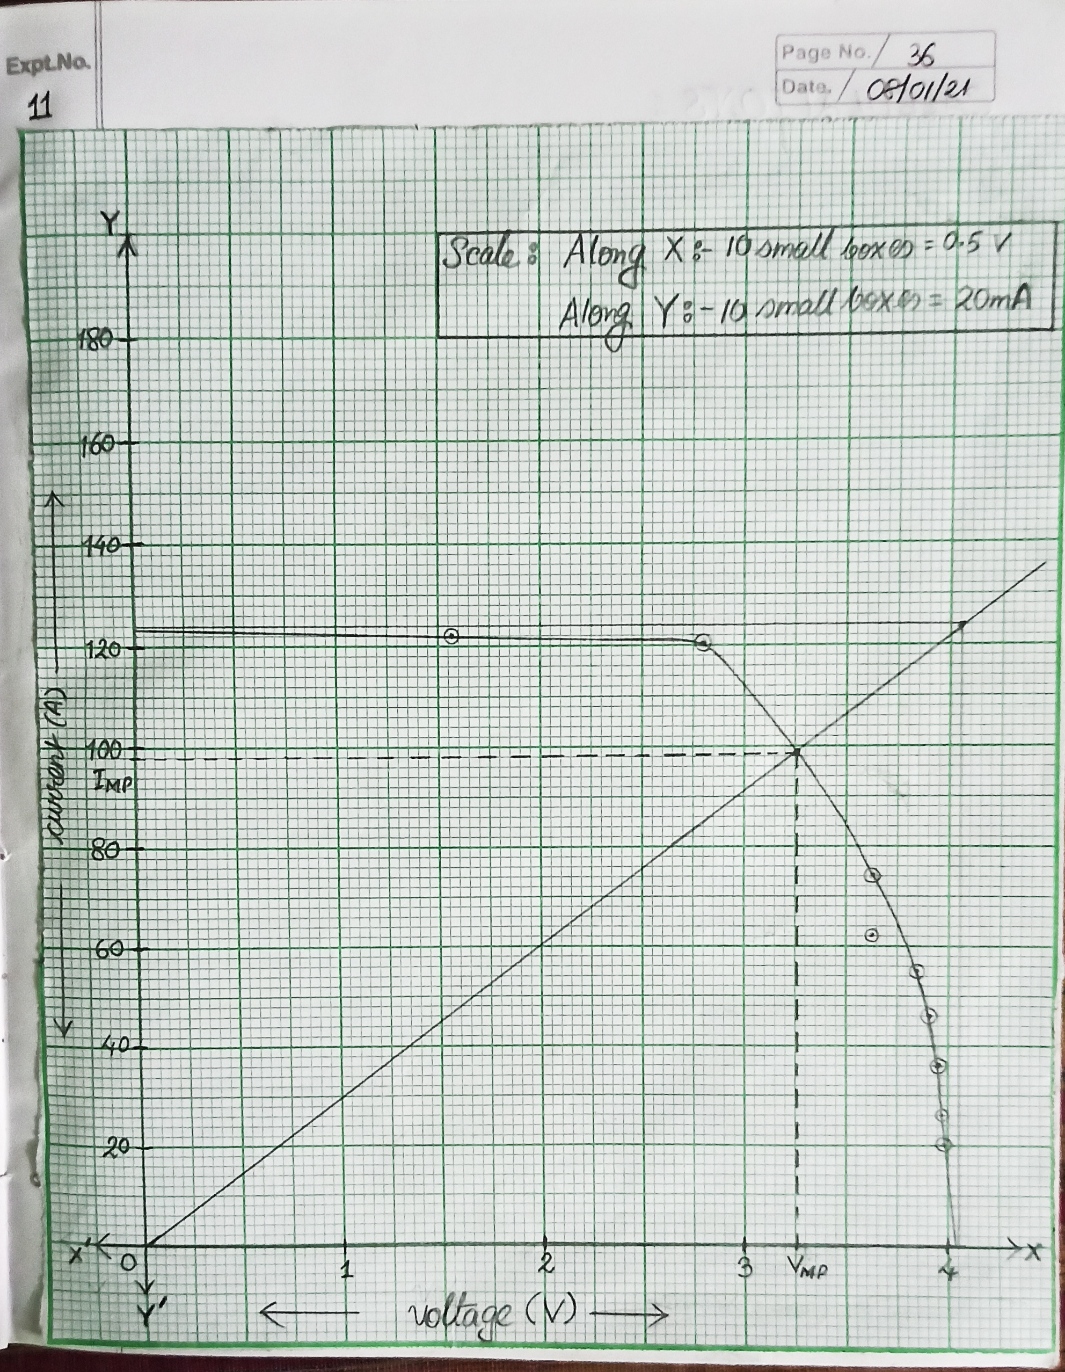 Expt.No.
11
Page No. 36
Date. 08/01/21
Y
Scale: Along X:- 10 small boxes = 0.5 V
Along Y:- 10 small boxes = 20mA
180
160
140
120
100
IMP
80
60
40
20
current (A)
X' O 1 2 3 VMP 4 X
Y'
voltage (V)